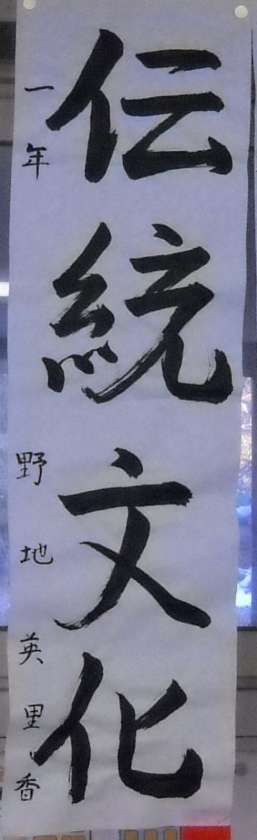 伝統文化
一年 野地英里香